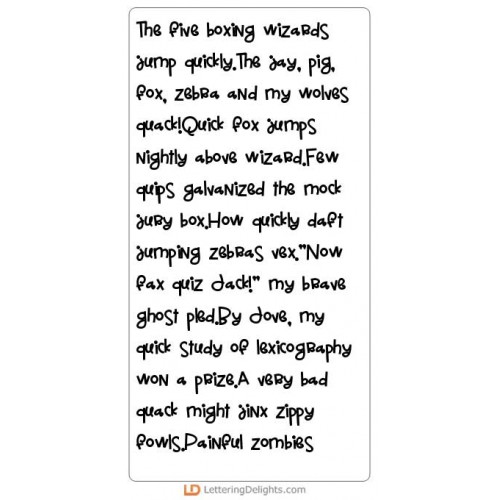 The five boxing wizards
jump quickly.The jay, pig,
fox, zebra and my wolves
quack!Quick fox jumps
nightly above wizard.Few
quips galvanized the mock
jury box.How quickly daft
jumping zebras vex."Now
fax quiz Jack!" my brave
ghost pled.By Jove, my
quick study of lexicography
won a prize.A very bad
quack might jinx zippy
fowls.Painful zombies
LD LetteringDelights.com